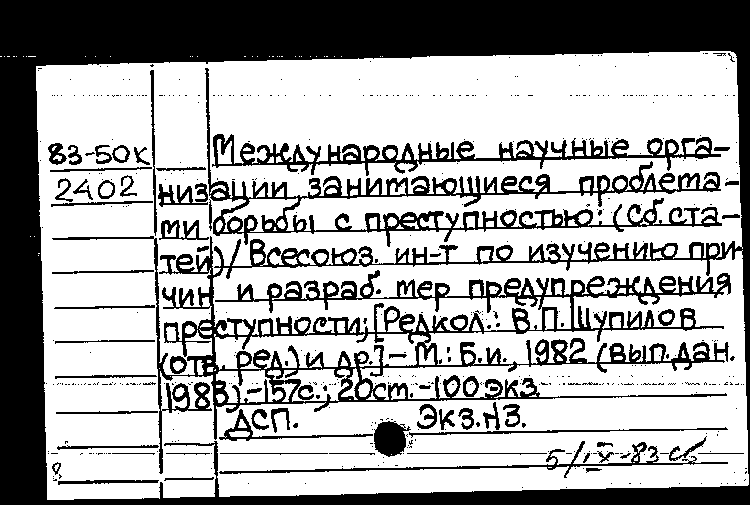 83-50К Международные научные орга-
2402 низации, занимающиеся проблема-
ми борьбы с преступностью: (Сб. ста-
тей)/ Всесоюз. ин-т по изучению при-
чин и разраб. мер предупреждения
преступности; [Редкол.: В.П. Шупилов
(отв. ред.) и др.] - М.: Б.и., 1982 (вып. дан.
1983). - 157с.; 20см. - 100 экз.
ДСП. Экз. № 3.
5/IX-83 сб
8